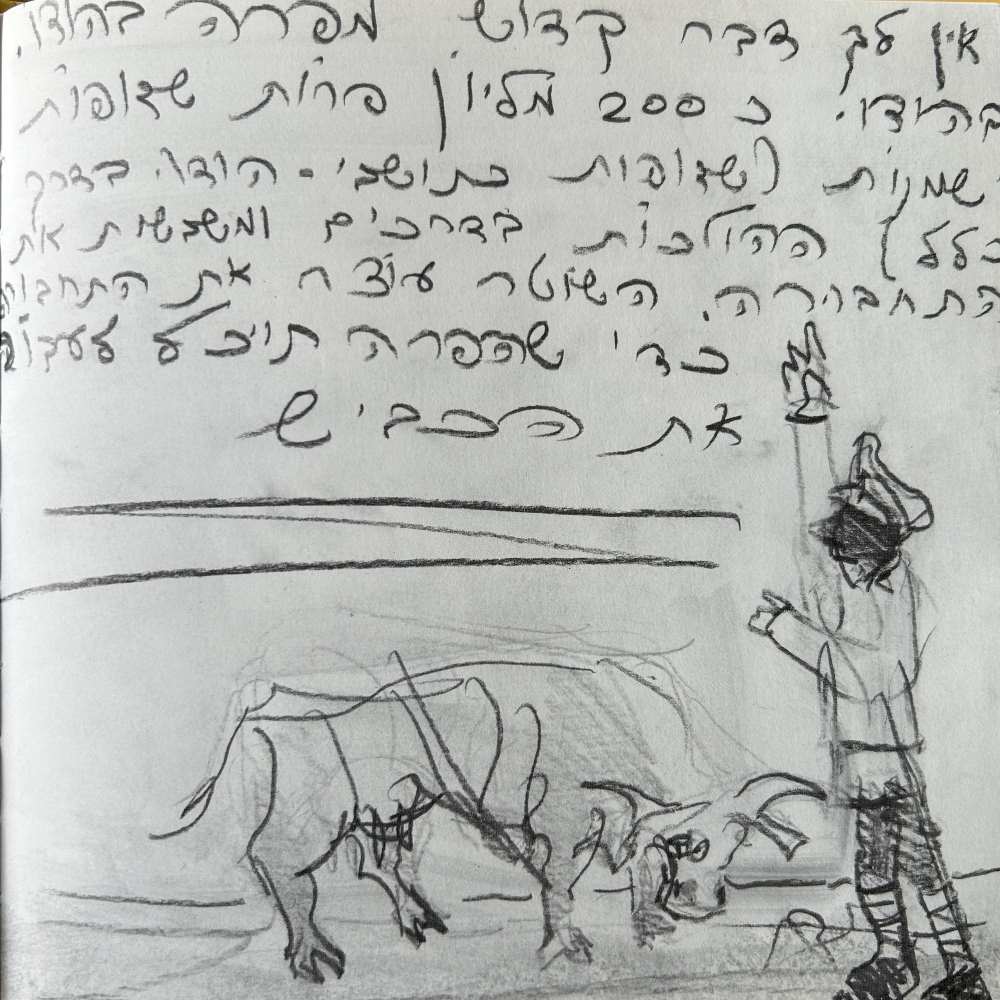 אין לך דבר קדוש מפרה בהודו.
בהודו. כ 200 מליון פרות שדופות
שמנות (שדופות כתושבי - הודו בדרך
כלל) ההולכות בדרכים ומשבשות את
התחבורה. השוטר עוצר את התחבורה
כדי שהפרה תוכל לעבור
את הכביש